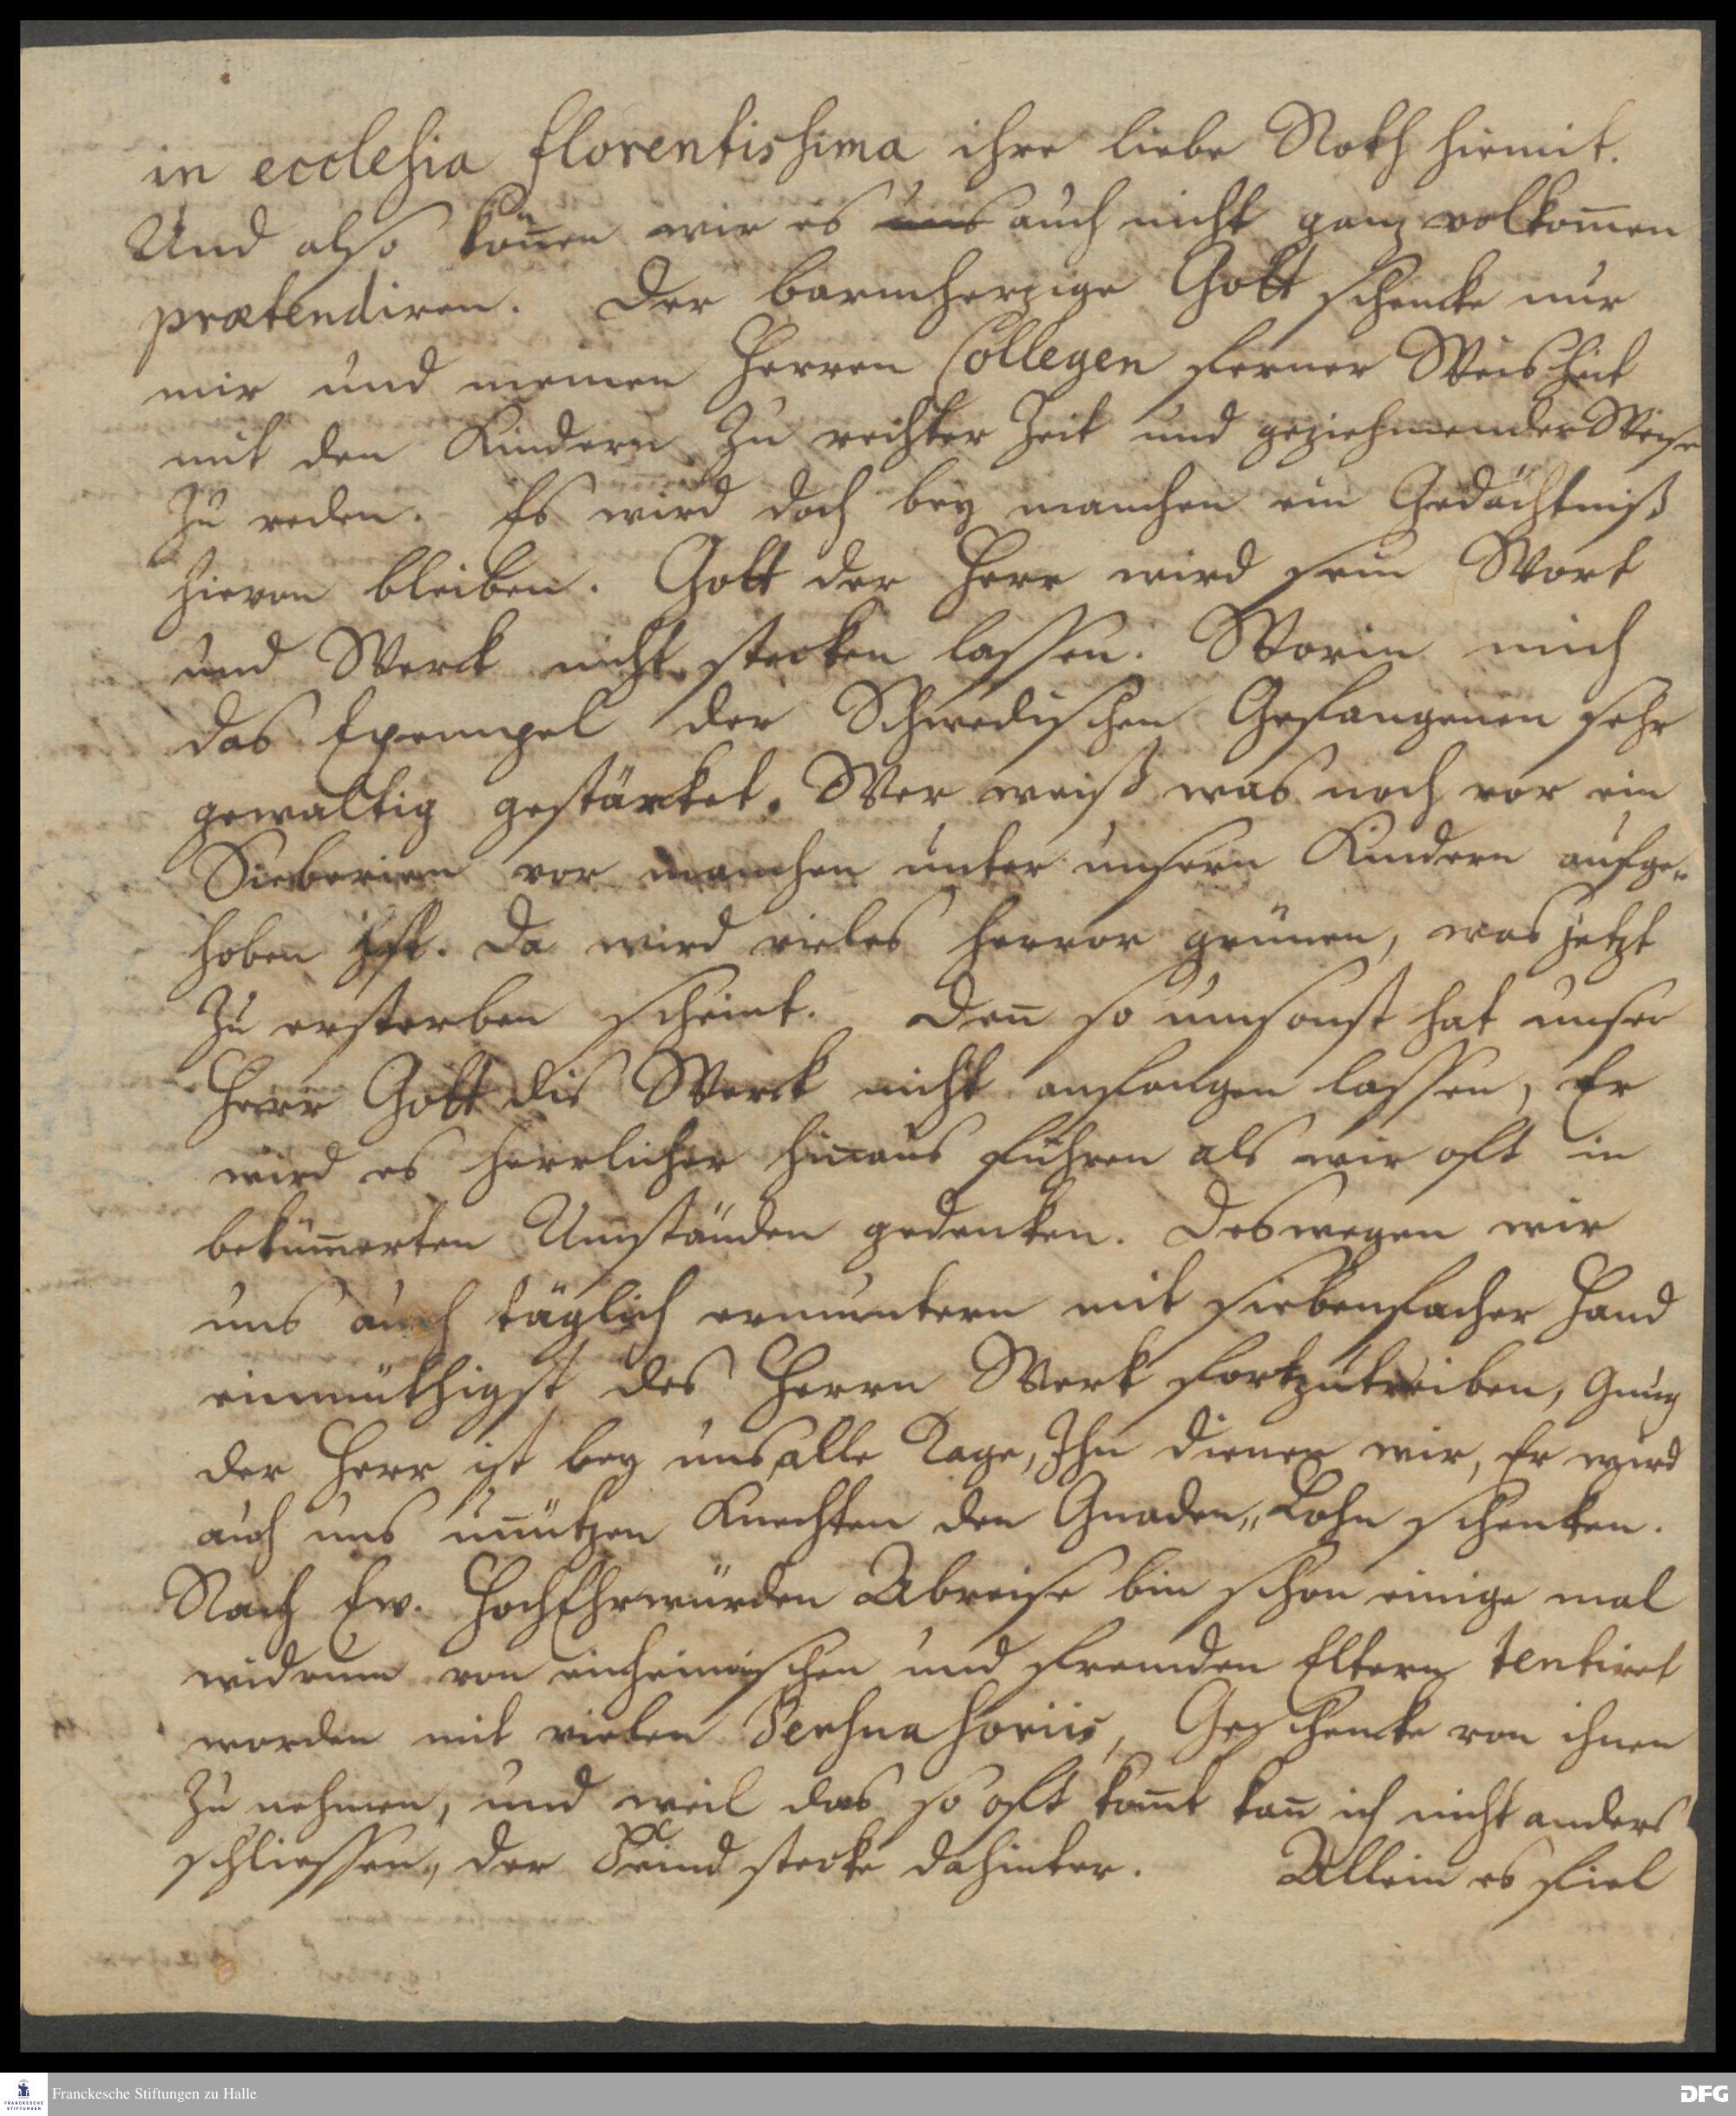 in ecclesia florentissima ihre liebe Noth hiemit.
Und also kön̄en wir es uns auch nicht ganz volkom̄en
prætendiren. Der barmherzige Gott schencke nur
mir und meinen Herren Collegen ferner Weisheit
mit den Kindern zu rechter Zeit und geziehmender Weise
zu reden. Es wird doch bey manchen ein Gedächtniß
hievon bleiben. Gott der Herr wird sein Wort
und Werck nicht stecken lassen. Worin mich
das Exempel der Schwedischen Gefangenen sehr
gewaltig gestärket. Wer weiß was noch vor ein
Sieberien vor manchen unter unsern Kindern aufge-
hoben ist. Da wird vieles hervor grünen, was jetzt
zu ersterben scheint. Den̄ so umsonst hat unser
Herr Gott dis Werck nicht anfangen lassen, Er
wird es herrlicher hinaus führen als wir oft in
beküm̄erten Umständen gedenken. Deswegen wir
uns auch täglich ermuntern mit siebenfacher Hand
einmüthigst des Herrn Werk fortzutreiben, Gnug
der Herr ist bey uns alle Tage, Ihn dienen wir, Er wird
auch uns un̄ützen Knechten den Gnaden-Lohn schenken.
Nach Ew. HochEhrwürden Abreise bin schon einige mal
widrum von einheimischen und fremden Eltern tentiret
worden mit vielen Persuasoriis, Geschencke von ihnen
zu nehmen, und weil das so oft kom̄t kan̄ ich nicht anders
schliessen, der Feind stecke dahinter. Allein es fiel
Franckesche Stiftungen zu Halle
FRANCKESCHE STIFTUNGEN
DFG